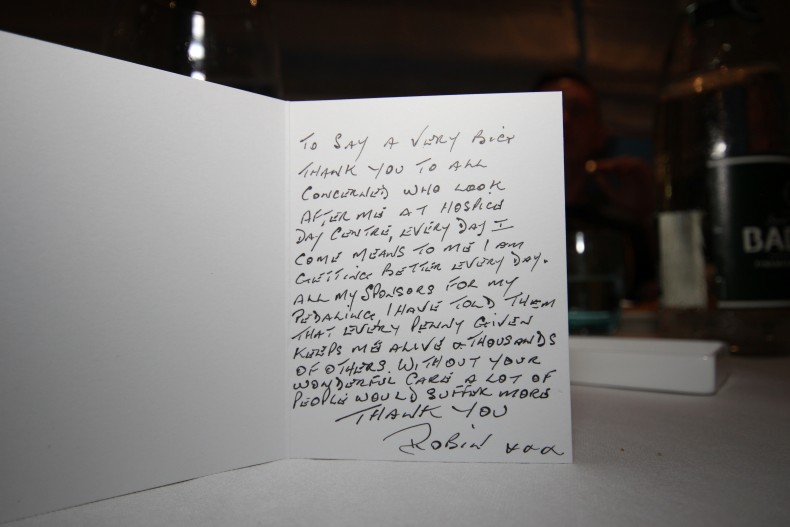 TO SAY A VERY BIG
THANK YOU TO ALL
CONCERNED WHO LOOK
AFTER ME AT HOSPICE
DAY CENTRE, EVERY DAY I
COME MEANS TO ME I AM
GETTING BETTER EVERY DAY.
ALL MY SPONSORS FOR MY
PEDALING I HAVE TOLD THEM
THAT EVERY PENNY GIVEN
KEEPS ME ALIVE & THOUSANDS
OF OTHERS. WITHOUT YOUR
WONDERFUL CARE A LOT OF
PEOPLE WOULD SUFFER MORE
THANK YOU
ROBIN xxx